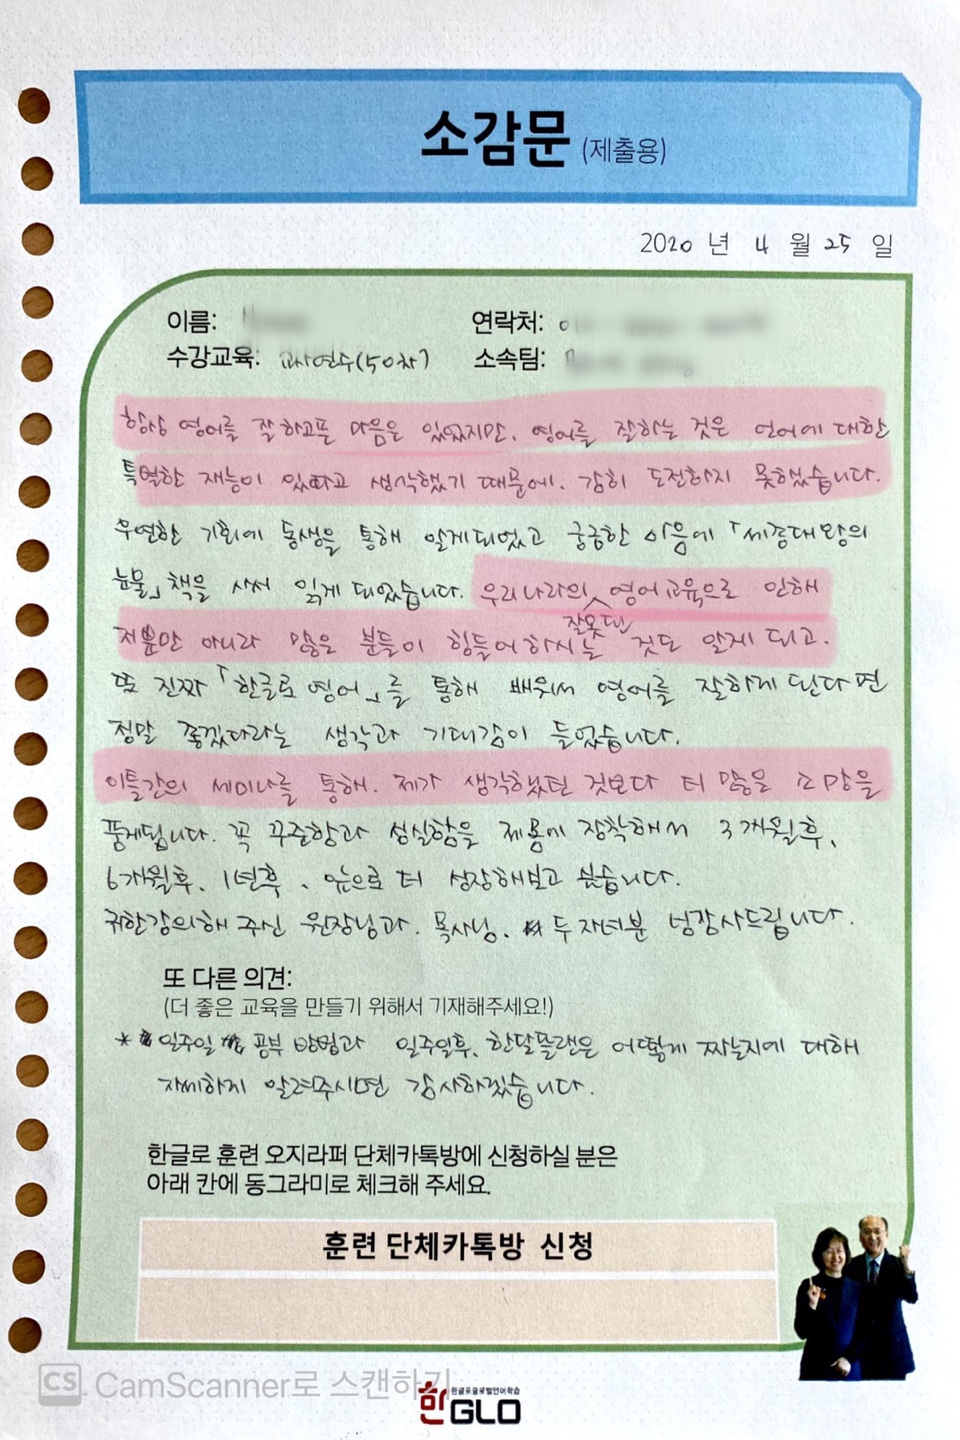 소감문 (제출용)
2020 년 4 월 25 일
이름: 연락처:
수강교육: 교사연수(50차) 소속팀:
항상 영어를 잘 하고픈 마음은 있었지만, 영어를 잘하는 것은 언어에 대한
특별한 재능이 있따고 생각했기 때문에. 감히 도전하지 못했습니다.
우연한 기회에 동생을 통해 알게되었고 궁금한 마음에 「세종대왕의
눈물」책을 사서 읽게 되었습니다. 우리나라의 잘못된 영어교육으로 인해
저뿐만 아니라 많은 분들이 힘들어하시는 것도 알게 되고.
또 진짜 「한글로 영어」를 통해 배워서 영어를 잘하게 된다면
정말 좋겠다라는 생각과 기대감이 들었습니다.
이틀간의 세미나를 통해. 제가 생각했던 것보다 더 많은 소망을
품게됩니다. 꼭 꾸준함과 성실함을 제몸에 장착해서 3개월후,
6개월후, 1년후, 앞으로 더 성장해보고 싶습니다.
귀한강의해 주신 원장님과. 목사님, 두 자녀분 넘감사드립니다.
또 다른 의견:
(더 좋은 교육을 만들기 위해서 기재해주세요!)
* 일주일 공부 방법과 일주일후, 한달플랜은 어떻게 짜는지에 대해
자세하게 알려주시면 감사하겠습니다.
한글로 훈련 오지라퍼 단체카톡방에 신청하실 분은
아래 칸에 동그라미로 체크해 주세요.
훈련 단체카톡방 신청
CS CamScanner로 스캔하기
한글로글로벌언어학습
한GLO